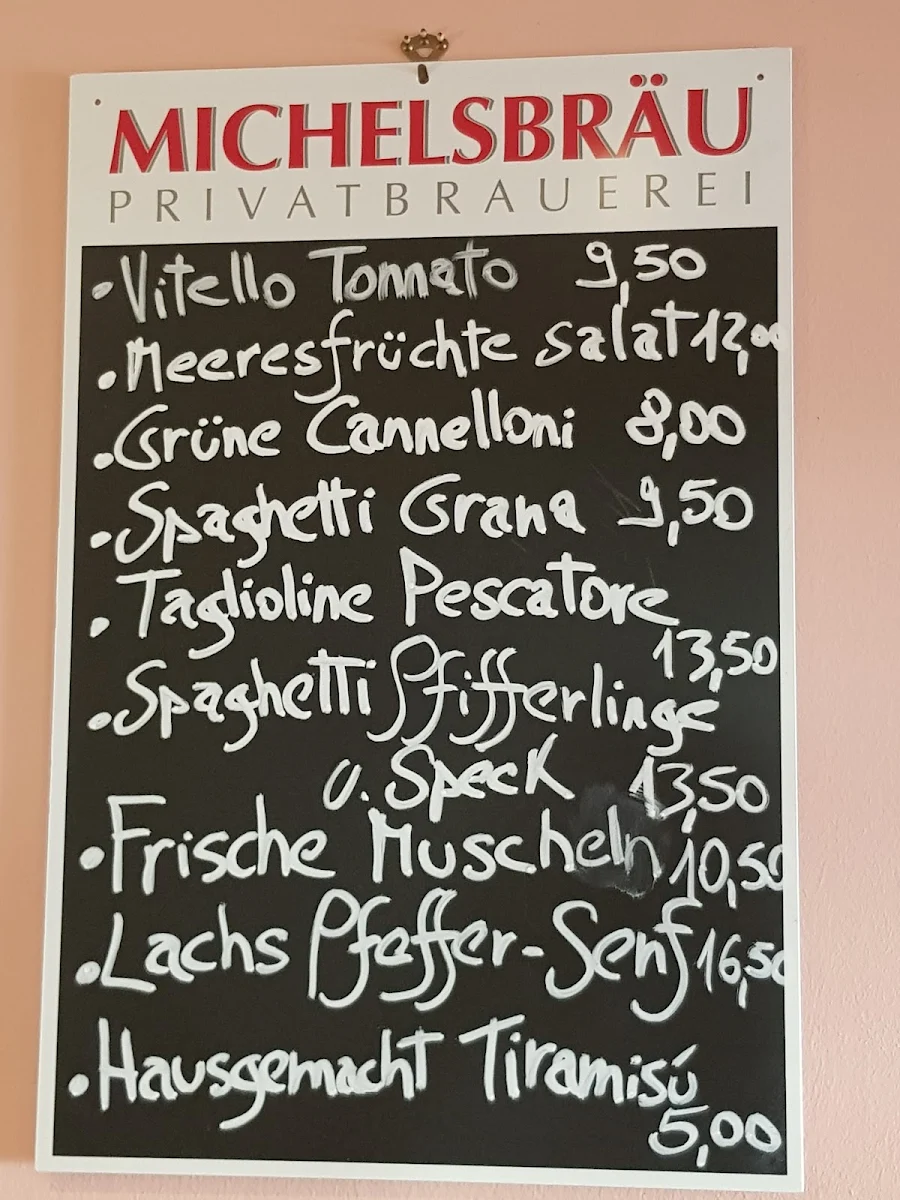 MICHELSBRÄU
PRIVATBRAUEREI
• Vitello Tonnato 9,50
• Meeresfrüchte salat 12,00
• Grüne Cannelloni 8,00
• Spaghetti Grana 9,50
• Taglioline Pescatore
13,50
• Spaghetti Pfifferlinge
u. Speck 13,50
• Frische Muscheln 10,50
• Lachs Pfeffer-Senf 16,50
• Hausgemacht Tiramisú
5,00